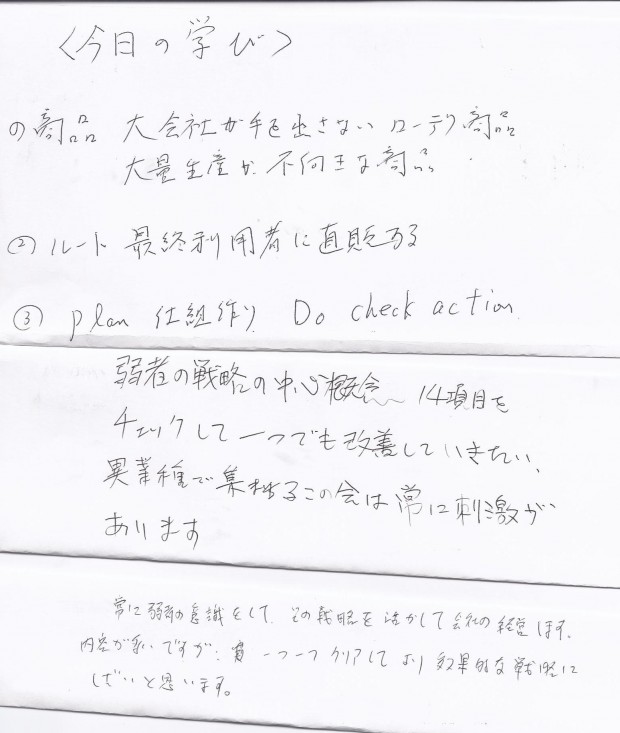 〈今日の学び〉
の商品 大会社が手を出さないローテク商品
大量生産が不向きな商品
② ルート 最終利用者に直販する
③ plan 仕組作り Do check action
弱者の戦略の中心概念 14項目を
チェックして一つでも改善していきたい、
異業種で集まるこの会は常に刺激が
あります
常に弱者の意識をして、その戦略を活かして会社の経営します。
内容が多いですが、一つ一つクリアしてより効果的な戦略に
したいと思います。